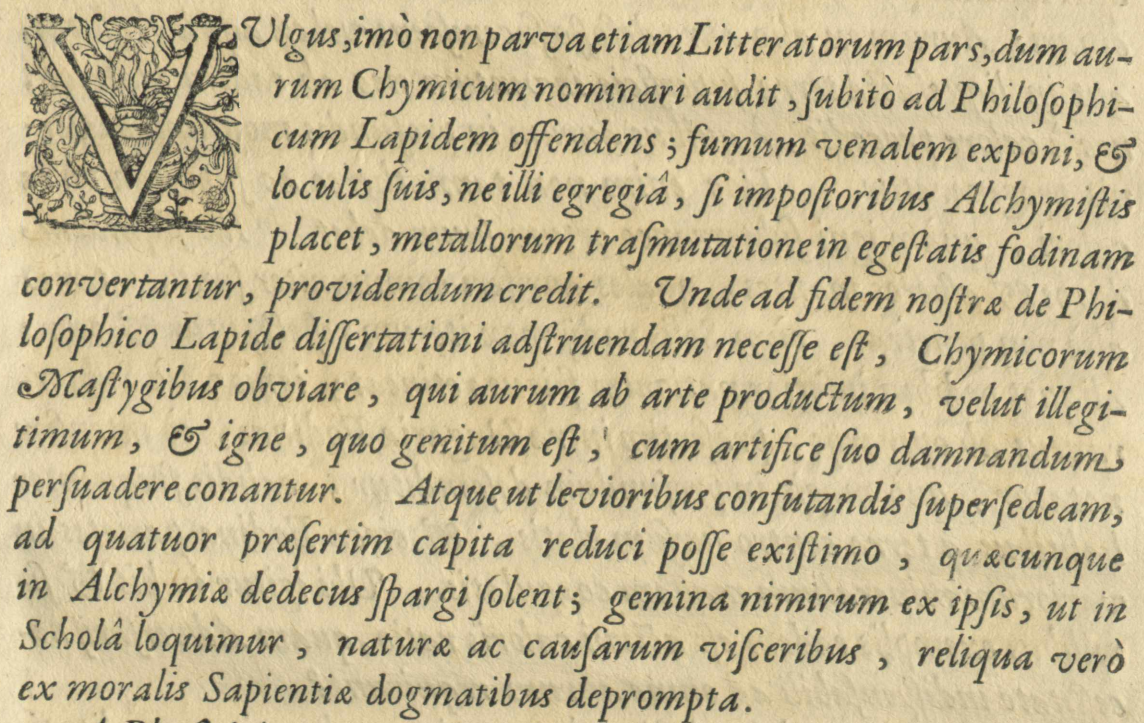 VUlgus, imò non parva etiam Litteratorum pars, dum au-
rum Chymicum nominari audit, ſubitò ad Philoſophi-
cum Lapidem offendens; fumum venalem exponi, &
loculis ſuis, ne illi egregiâ, ſi impoſtoribus Alchymiſtis
placet, metallorum traſmutatione in egeſtatis fodinam
convertantur, providendum credit. Unde ad fidem noſtræ de Phi-
loſophico Lapide diſſertationi adſtruendam neceſſe eſt, Chymicorum
Maſtygibus obviare, qui aurum ab arte productum, velut illegi-
timum, & igne, quo genitum eſt, cum artifice ſuo damnandum
perſuadere conantur. Atque ut levioribus confutandis ſuperſedeam,
ad quatuor præſertim capita reduci poſſe exiſtimo, quæcunque
in Alchymiæ dedecus ſpargi ſolent; gemina nimirum ex ipſis, ut in
Scholâ loquimur, naturæ ac cauſarum viſceribus, reliqua verò
ex moralis Sapientiæ dogmatibus deprompta.